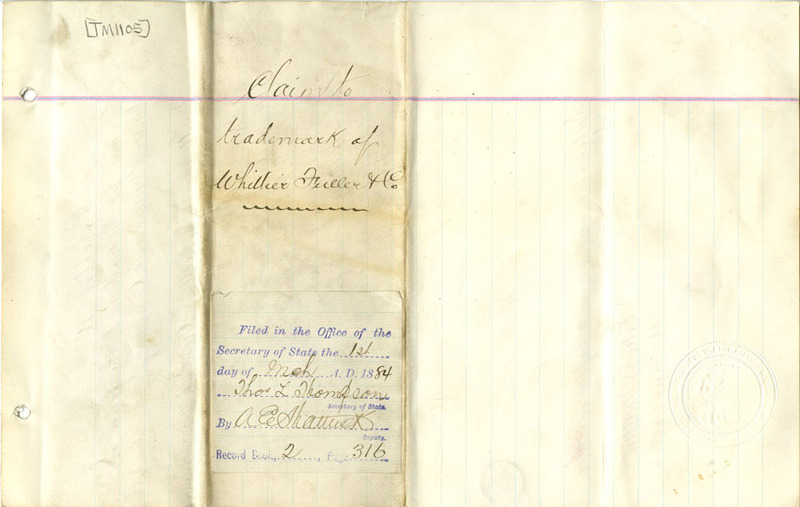 [TM1105]
Claim to
trademark of
Whittier Fuller & Co
Filed in the Office of the
Secretary of State the 1st
day of Mch A. D. 1884
Thos L Thompson
Secretary of State.
By A E Shattuck
Deputy.
Record Book, 2, Page 316